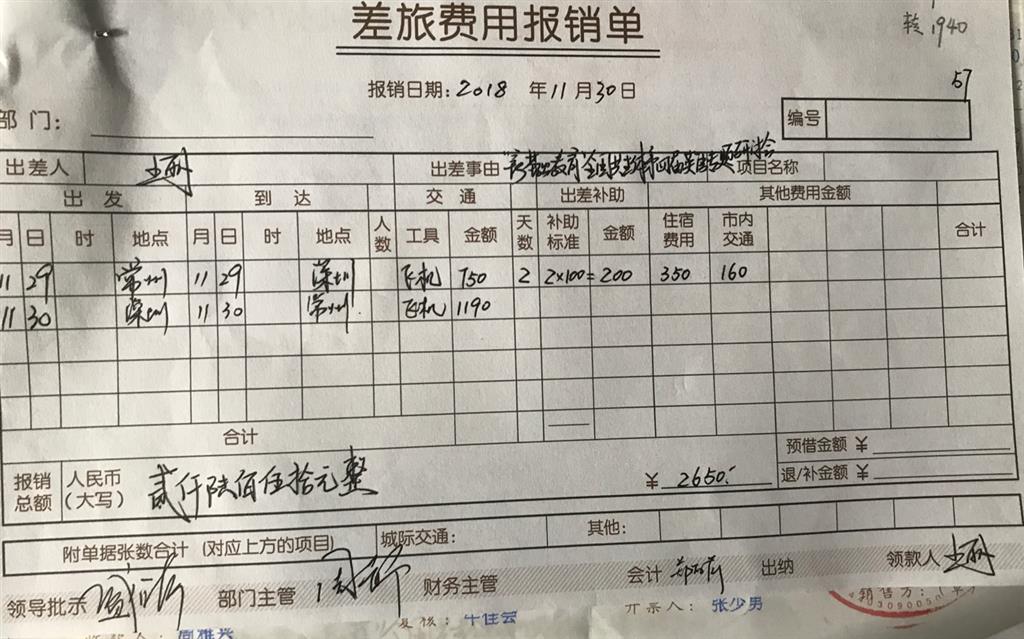 转1940
差旅费用报销单
报销日期: 2018 年 11 月 30 日
57
部 门:
编号
出差人 王丽 出差事由 项目名称
出 发 到 达 交 通 出差补助 其他费用金额
月 日 时 地点 月 日 时 地点 人数 工具 金额 天数 补助标准 金额 住宿费用 市内交通 合计
11 29 常州 11 29 深圳 飞机 750 2 2×100= 200 350 160
11 30 深圳 11 30 常州 飞机 1190
合计
预借金额 ¥
报销总额 人民币(大写) 贰仟陆佰伍拾元整 ¥ 2650.- 退/补金额 ¥
附单据张数合计 (对应上方的项目) 城际交通: 其他:
领导批示 部门主管 财务主管 会计 出纳 领款人 王丽
收款人: 周雅兴 复核: 牛佳会 开票人: 张少男 销售方: